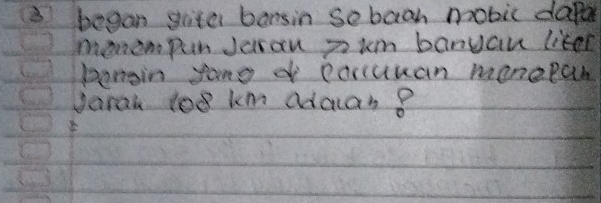 3 began 9 liter bensin sebaah mobic dapa
menempun Jarau 72 km banyau liter
bensin yang di percuuan menepah
Jarak 108 km adauah ?